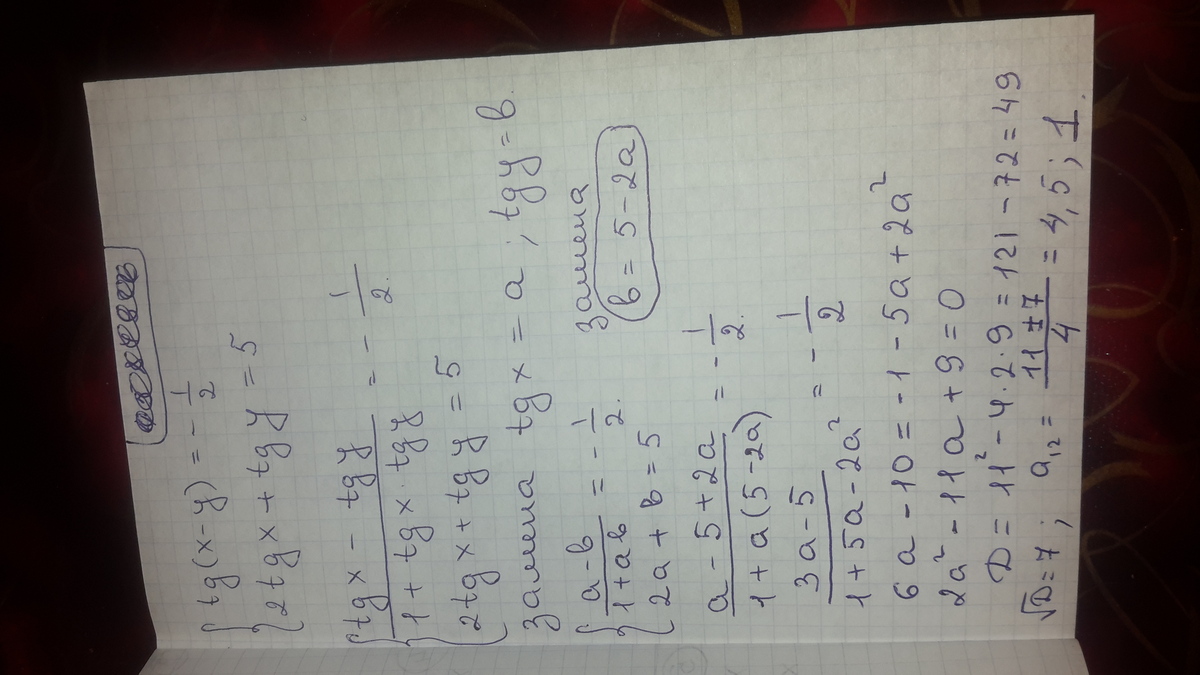 { tg(x-y) = -1/2
{ 2tg x + tg y = 5
{ (tg x - tg y)/(1 + tg x · tg y) = -1/2.
{ 2tg x + tg y = 5
замена tg x = a ; tg y = b.
{ (a-b)/(1+ab) = -1/2. замена
{ 2a + b = 5 b = 5-2a
(a-5+2a)/(1+a(5-2a)) = -1/2.
(3a-5)/(1+5a-2a²) = -1/2
6a-10 = -1-5a+2a²
2a²-11a+9=0
D=11²-4·2·9=121-72=49
√D=7; a₁₂ = (11±7)/4 = 4,5; 1.